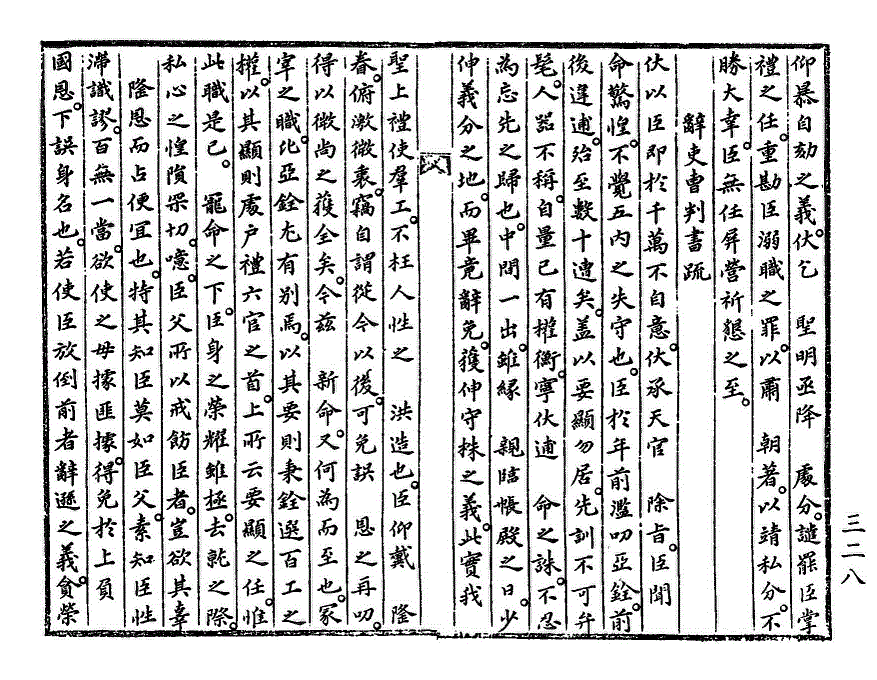 仰暴自劾之義。伏乞 聖明亟降 處分。譴罷臣掌
禮之任。重勘臣溺職之罪。以肅 朝著。以靖私分。不
勝大幸。臣無任屛營祈懇之至。
辭吏曹判書疏
伏以臣卽於千萬不自意。伏承天官 除旨。臣聞
命驚惶。不覺五內之失守也。臣於年前濫叨亞銓。前
後違逋。殆至數十遭矣。盖以要顯勿居。先訓不可弁
髦。人器不稱。自量已有權衡。寧伏逋 命之誅。不忍
為忘先之歸也。中間一出。雖緣 親臨帳殿之日。少
伸義分之地。而畢竟辭免。獲伸守株之義。此實我
聖上禮使羣工。不枉人性之 洪造也。臣仰戴 隆
眷。俯激微衷。竊自謂從今以後。可免誤 恩之再叨。
得以微尙之獲全矣。今玆 新命。又何為而至也。冢
宰之職。比亞銓尤有別焉。以其要則秉銓選百工之
權。以其顯則處戶禮六官之首。上所云要顯之任。惟
此職是已。 寵命之下。臣身之榮耀雖極。去就之際。
私心之惶隕冞切。噫。臣父所以戒飭臣者。豈欲其辜
隆恩而占便宜也。特其知臣莫如臣父。素知臣性
滯識謬。百無一當。欲使之毋據匪據。得免於上負
國恩。下誤身名也。若使臣放倒前者辭遜之義。貪榮
三二八